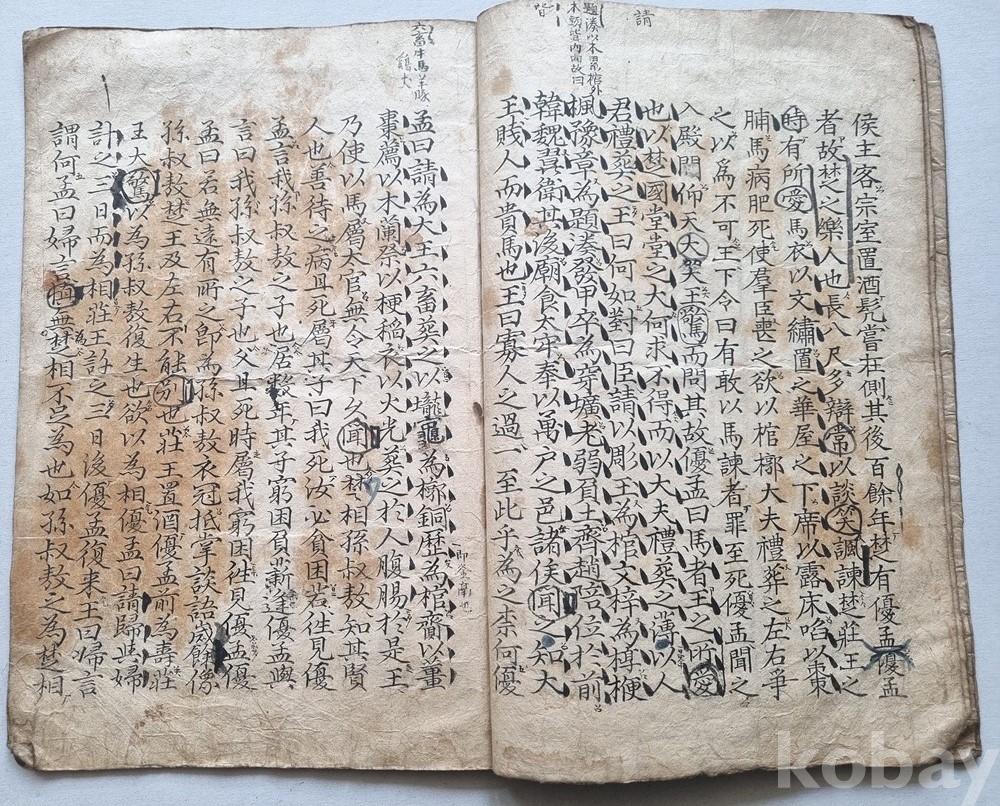 請
題湊以木累棺外
木頭皆内向故曰
侯主客宗室置酒髡嘗在側其後百餘年楚有優孟優孟
者故楚之樂人也長八尺多辯常以談笑諷諫楚莊王之
時有所愛馬衣以文繡置之華屋之下席以露床啗以棗
脯馬病肥死使羣臣喪之欲以棺槨大夫禮葬之左右爭
之以爲不可王下令曰有敢以馬諫者罪至死優孟聞之
入殿門仰天大笑王驚而問其故優孟曰馬者王之所愛
也以楚國堂堂之大何求不得而以大夫禮葬之薄以人
君禮葬之王曰何如對曰臣請以彫玉爲棺文梓爲椁楩
楓豫章爲題湊發甲卒爲穿壙老弱負土齊趙陪位於前
韓魏翼衛其後廟食太牢奉以萬户之邑諸侯聞之知大
王賤人而貴馬也王曰寡人之過一至此乎為之柰何優
六畜牛馬羊豚
鷄犬
孟曰請為大王六畜葬之以壠竈為槨銅歷為棺齎以薑
棗薦以木蘭祭以梗稻衣以火光葬之於人腹腸於是王
乃使以馬屬太官無令天下久聞也楚相孫叔敖知其賢
人也善待之病且死屬其子曰我死汝必貧困若往見優
孟言我孫叔敖之子也居數年其子窮困負薪逢優孟與
言曰我孫叔敖之子也父且死時屬我窮困往見優孟優
孟曰若無遠有所之即為孫叔敖衣冠抵掌談語歲餘像
孫叔敖楚王及左右不能別也莊王置酒優孟前為壽莊
王大驚以為孫叔敖復生也欲以為相優孟曰請歸與婦
計之三日而為相莊王許之三日後優孟復来王曰婦言
謂何孟曰婦言慎無楚之相不足為也如孫叔敖之為楚相
kobay